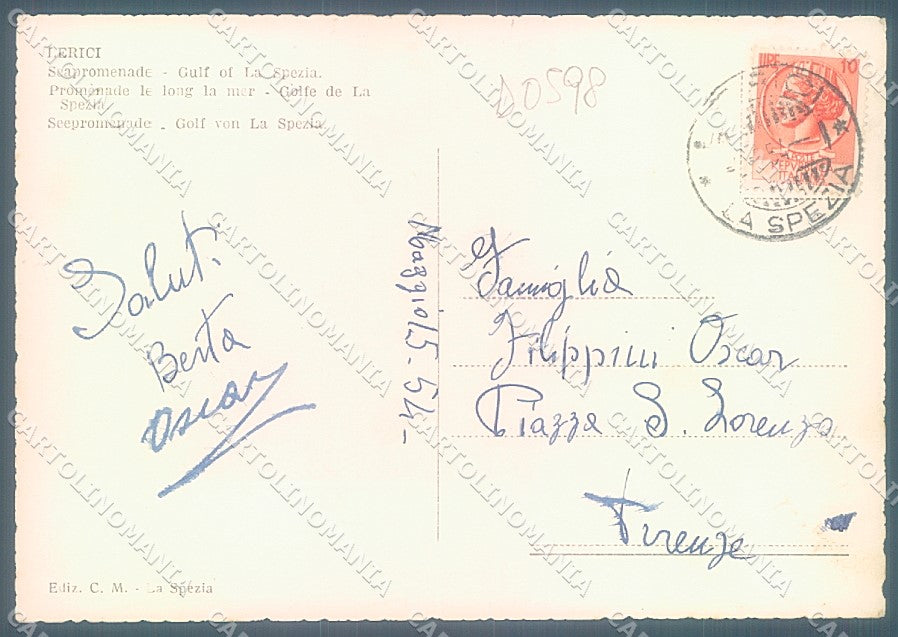 LERICI
Seapromenade - Gulf of La Spezia.
Promenade le long la mer - Golfe de La
Spezia
Seepromenade - Golf von La Spezia
D0598
LIRE 10
REPVBBLICA
ITALIANA
LA SPEZIA
Saluti
Berta
Oscar
Maggio 15 - 54 -
Famiglia
Filippini Oscar
Piazza S. Lorenzo
Firenze
Ediz. C. M. - La Spezia
CARTOLINOMANIA